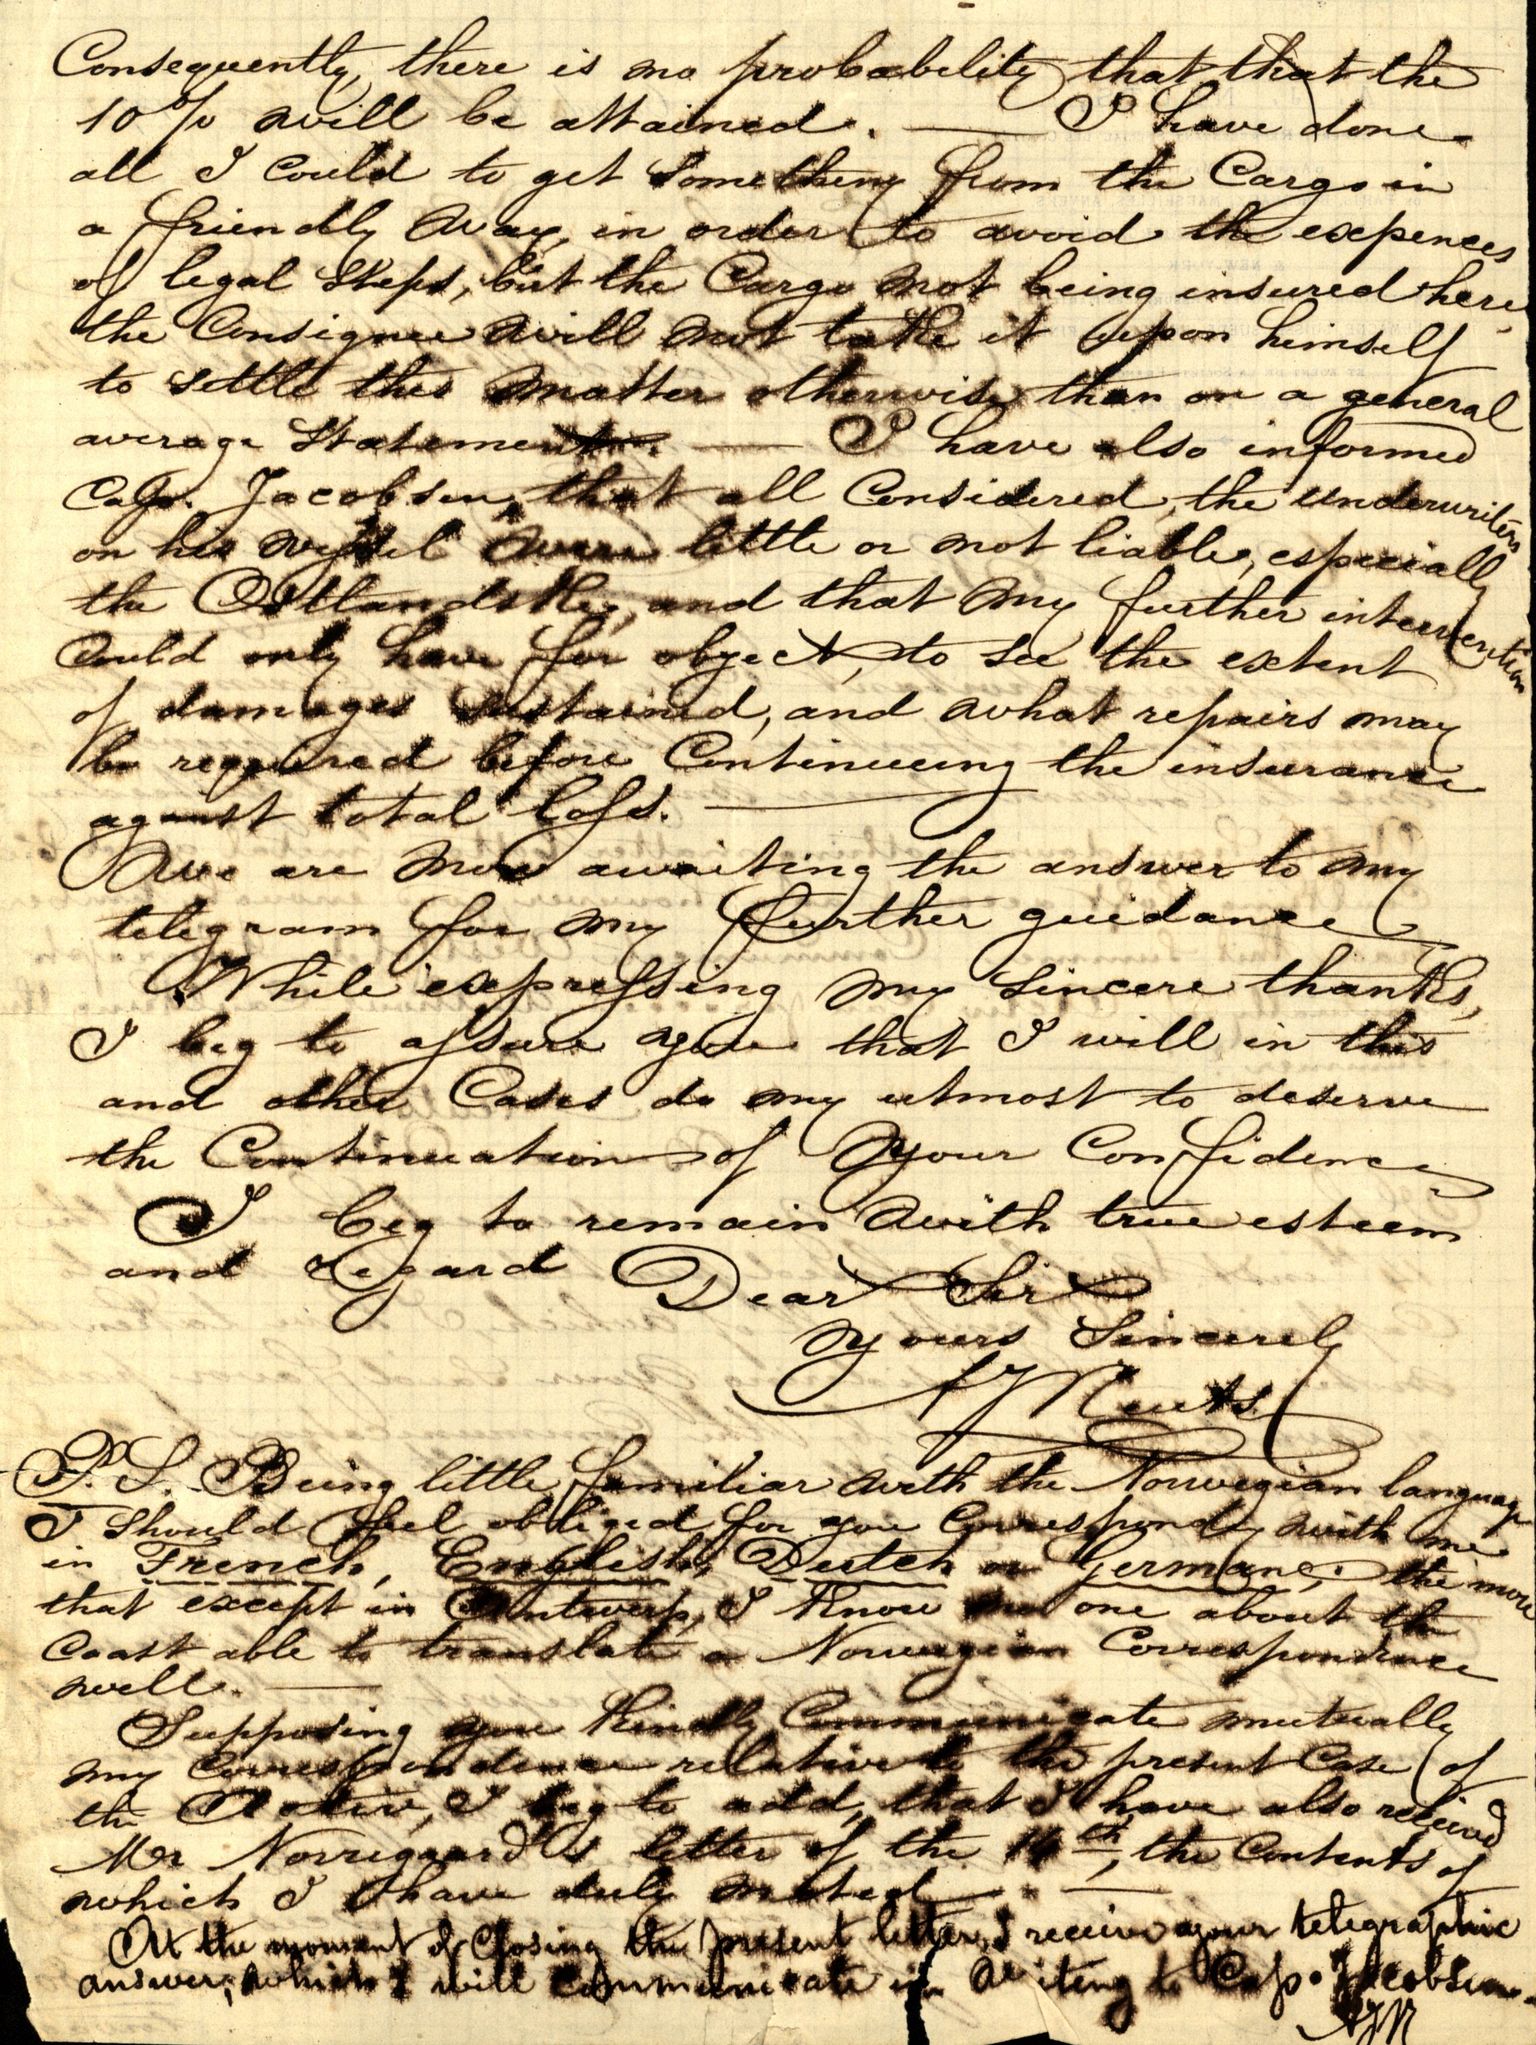 Consequently, there is no probability that that the
10% will be attained. — I have done
all I could to get something from the Cargo in
a friendly way, in order to avoid the expences
of legal steps, but the Cargo not being insured here,
the Consignee will not take it upon himself
to settle this matter otherwise than on a general
average statement. — I have also informed
Cap. Jacobsen, that all Considered, the underwriters
on his vessel were little or not liable, especially
the and that my further intervention
Could only have for object, to see the extent
of damages sustained, and what repairs may
be required before Continueing the insurance
against total loss. —
We are now awaiting the answer to my
telegram for my further guidance
While expressing my sincere thanks,
I beg to assure you that I will in this
and other Cases do my utmost to deserve
the Continuation of your Confidence
I beg to remain with true esteem
and regard Dear Sir
yours Sincerely
P.S. Being little familiar with the Norwegian language
I should feel obliged for you Correspondy with me
in French, English, Dutch or German, the more
that except in Antwerp, I know no one about the
Coast able to translate a Norwegian Correspondence
well. —
Supposing you kindly Communicate mutually
my Correspondence relative to the present Case of
the I beg to add, that I have also received
Mr Norregaard's letter of the 14th, the Contents of
which I have duly noted —
At the moment of Closing the present letter, I receive your telegraphic
answer, which I will communicate in writing to Cap. Jacobsen.
AJN